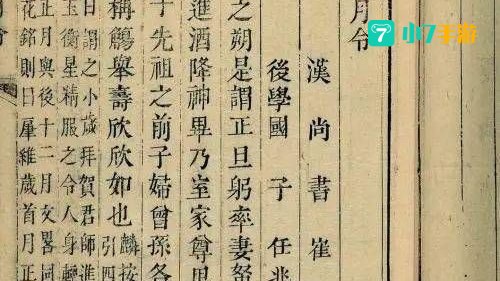 小7手游
月令
漢尚書崔
後學國子任兆
之朔是謂正旦躬率妻孥
進酒降神畢乃室家尊卑
子先祖之前子婦曾孫各
稱觴舉壽欣欣如也麟按
引四
日謂之小歲拜賀君師進
玉衡星精服之令人身輕
正月與後十二月交畧同
花銘則曰厪維歲首月正